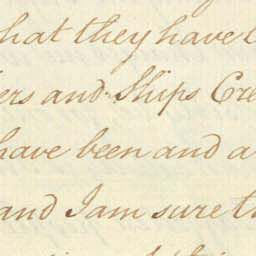 that they have
ers and Ships Cre
have been and a
and I am sure t